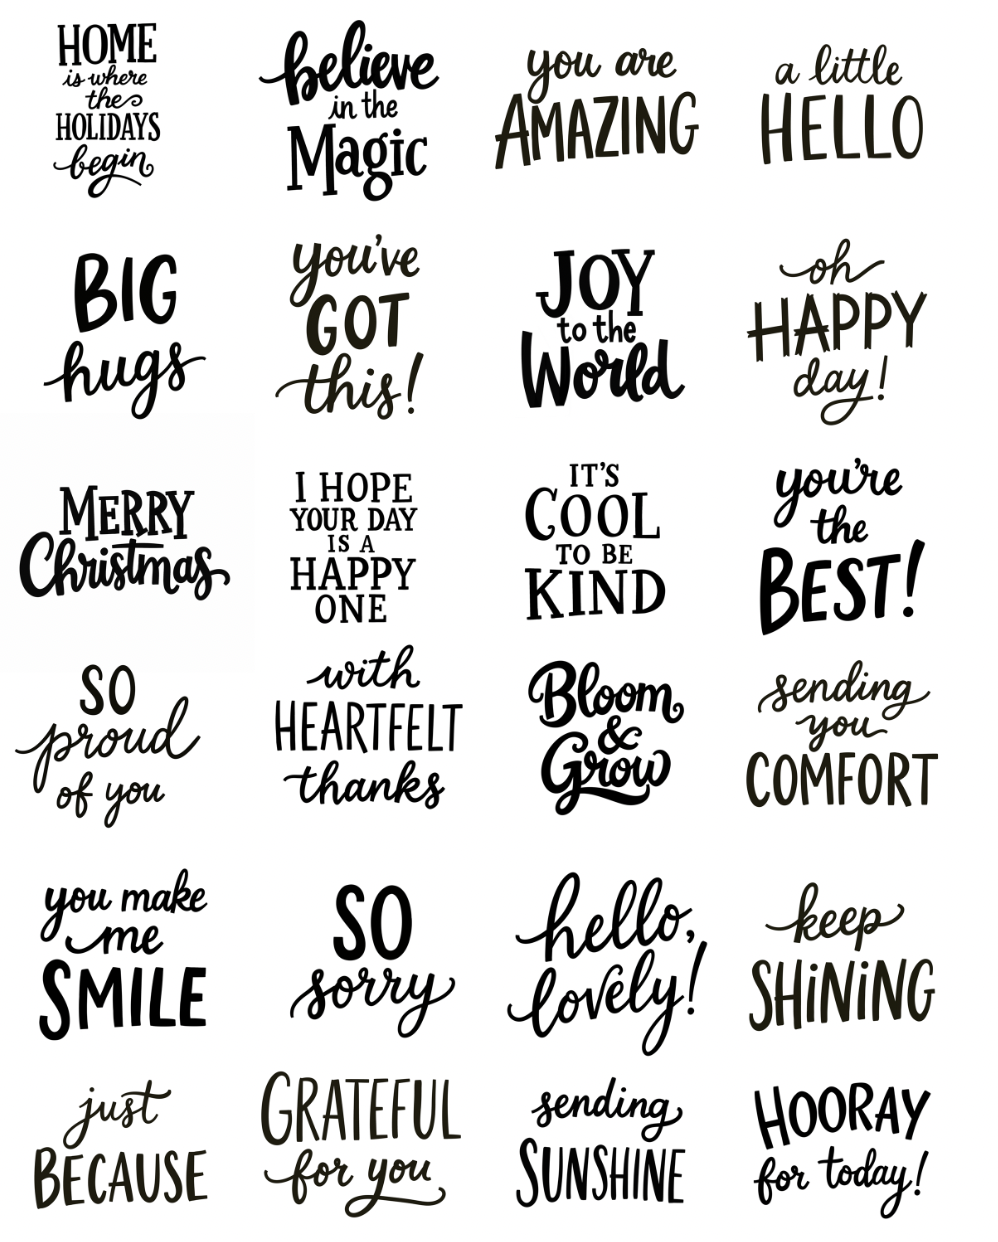 HOME
is where
the
HOLIDAYS
begin
believe
in the
Magic
you are
AMAZING
a little
HELLO
BIG
hugs
you've
GOT
this!
JOY
to the
World
oh
HAPPY
day!
MERRY
Christmas
I HOPE
YOUR DAY
IS A
HAPPY
ONE
IT'S
COOL
TO BE
KIND
you're
the
BEST!
SO
proud
of you
with
HEARTFELT
thanks
Bloom
&
Grow
sending
you
COMFORT
you make
me
SMILE
SO
sorry
hello,
lovely!
keep
SHiNiNG
just
BECAUSE
GRATEFUL
for you
sending
SUNSHINE
HOORAY
for today!